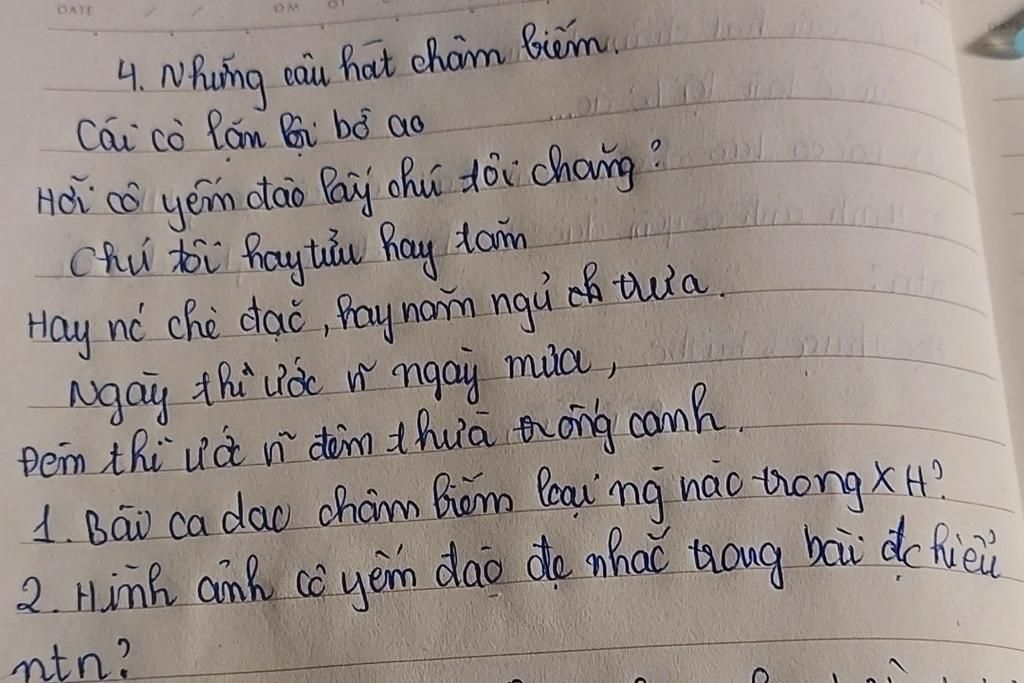 DATE / / DM ĐT
4. Những câu hát châm biếm.
Cái cò lặn lội bờ ao
Hỡi cô yếm đào lấy chú tôi chăng?
Chú tôi hay tửu hay tăm
Hay nc chè đặc, hay nằm ngủ trưa.
Ngày thì ước n~ ngày mưa,
Đêm thì ước n~ đêm thừa trống canh.
1. Bài ca dao châm biếm loại ng nào trong XH?
2. Hình ảnh cô yếm đào đc nhắc trong bài đc hiểu
ntn?